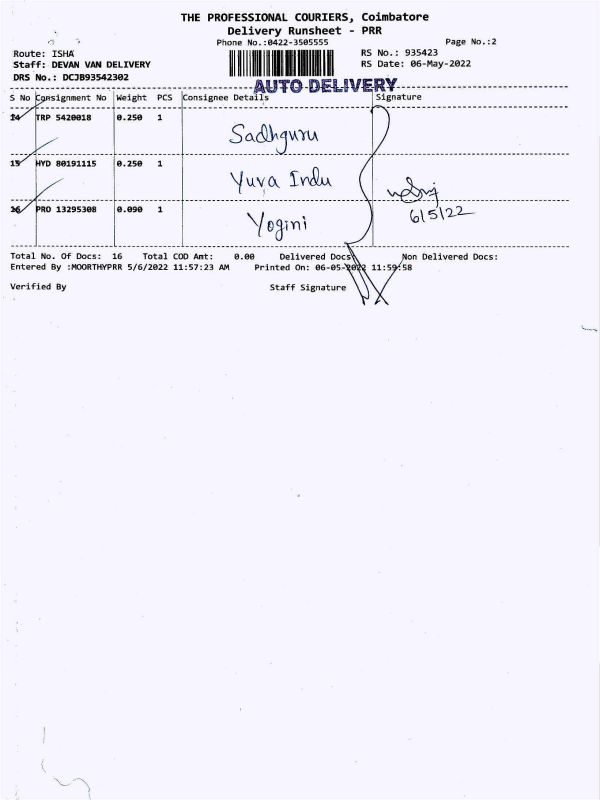 THE PROFESSIONAL COURIERS, Coimbatore
Delivery Runsheet - PRR
Phone No.:0422-3505555 Page No.:2
Route: ISHA RS No.: 935423
Staff: DEVAN VAN DELIVERY RS Date: 06-May-2022
DRS No.: DCJB93542302
AUTO DELIVERY
S No Consignment No Weight PCS Consignee Details Signature
14 TRP 5420018 0.250 1 Sadhguru
15 HYD 80191115 0.250 1 Yuva Indu
16 PRO 13295308 0.090 1 Yogini
6/5/22
Total No. Of Docs: 16 Total COD Amt: 0.00 Delivered Docs Non Delivered Docs:
Entered By :MOORTHYPRR 5/6/2022 11:57:23 AM Printed On: 06-05-2022 11:59:58
Verified By Staff Signature